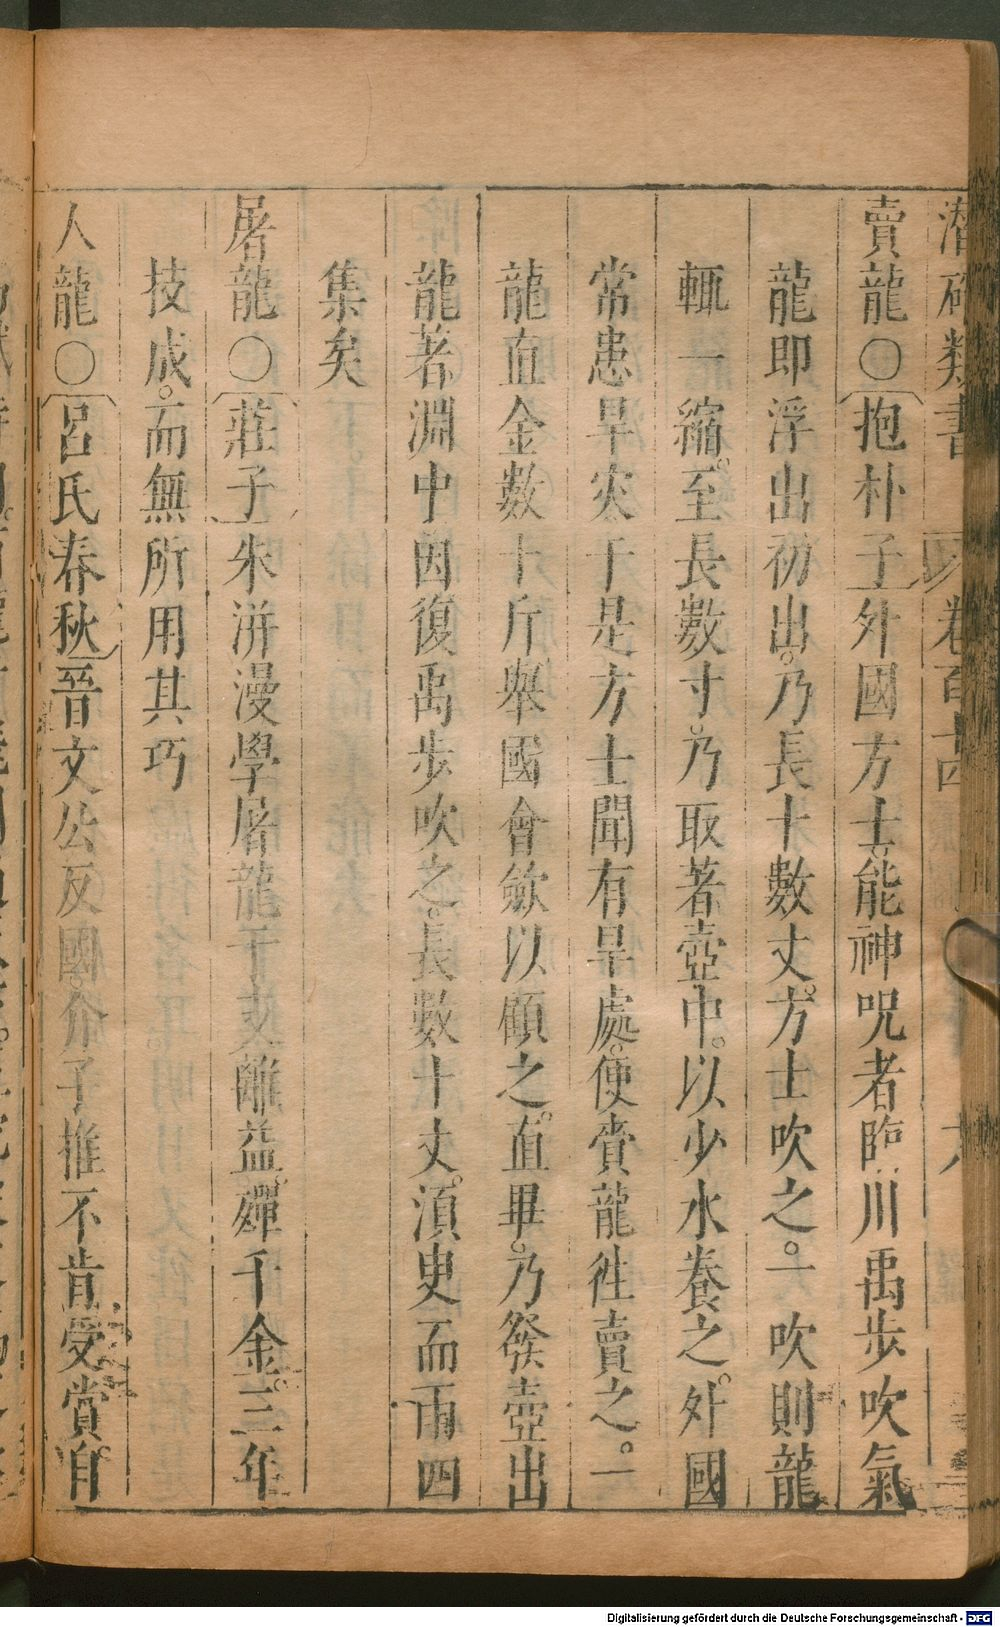 潛確類書 卷百十四 六
賣龍〇抱朴子外國方士能神呪者臨川禹步吹氣
龍卽浮出初出。乃長十數丈。方士吹之。一吹則龍
輒一縮。至長數寸。乃取著壺中。以少水養之。外國
常患旱灾于是方士聞有旱處。使賫龍徃賣之。一
龍直金數十斤舉國會斂以顧之。直畢。乃發壺出
龍著淵中因復禹步吹之。長數十丈。湏臾而雨四
集矣
屠龍〇莊子朱泙漫學屠龍于支離益。殫千金。三年
技成。而無所用其巧
人龍〇呂氏春秋晉文公反國。介子推不肯受賞自
Digitalisierung gefördert durch die Deutsche Forschungsgemeinschaft - DFG